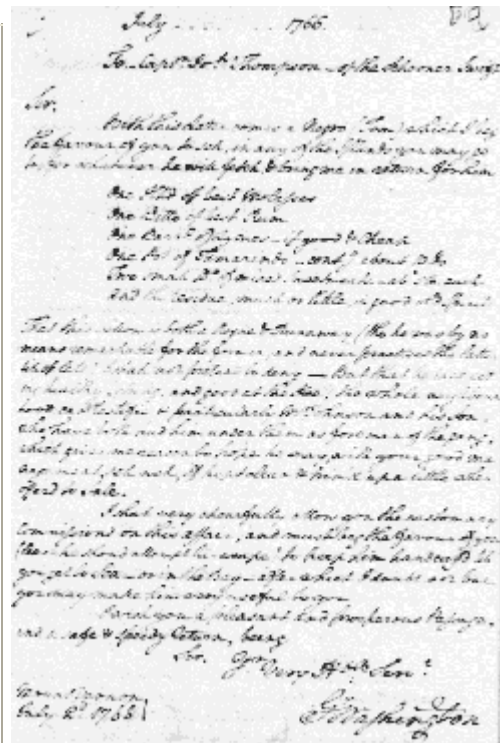 July 1766.
To Capt. Thompson of the Schooner Swift
Sir.
With this Letter comes a Negro (Tom) which I beg
the favour of you to sell, in any of the Islands you may go
to, for whatever he will fetch, & bring me in return for him
One Hhd of best Molasses
One Ditto of best Rum
One of good & Cheap
One Pot of Tamarinds about 10 lb
Two small Do of mixed Sweetmeats abt 5 lb each
And the residue, much or little, in good old Spirits
That this Fellow is both a Rogue & Runaway (tho he was by no
means remarkable for the former, and never practised the latter
till of late) I shall not pretend to deny — But that he is
healthy, strong, and good at the Hoe, the whole neighbour
hood can testifie & particularly Mr Johnson and his Son,
who have both had him under them as foreman of the gang;
which gives me reason to hope he may, with your good man
agement, sell well, if kept clean & trim'd up a little when
offerd to Sale.
I shall very chearfully allow you the customary
Commissions on this affair, and must beg the favour of you
(least he shoud attempt his escape) to keep him handcuffd till
you get to Sea — or in the Bay — after which I doubt not but
you may make him very useful to you.
I wish you a pleasant and prosperous Passage,
and a safe & speedy Return, being
Sir, Yr
Very Hble Servt
Mount Vernon
July 2d 1766
Go Washington